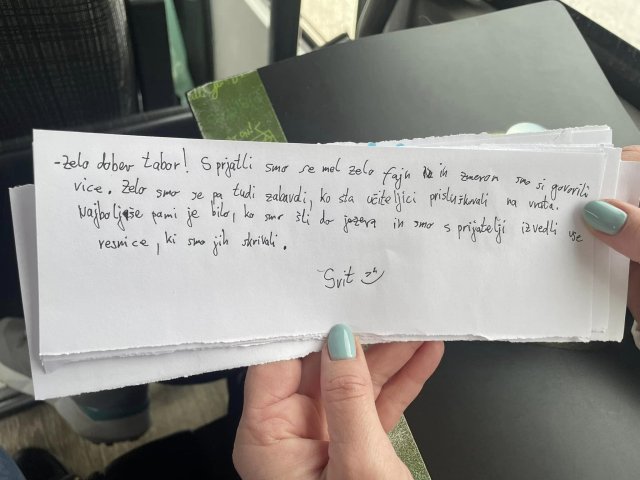 -Zelo dober tabor! S prjatli smo se mel zelo fajn in zmeron smo si govorili
vice. Zelo smo se pa tudi zabavali, ko sta učiteljici prisluškovali na vrata.
Najboljše pami je bilo, ko smo šli do jezera in smo s prijatelji izvedli vse
resnice, ki smo jih skrivali.
Svit